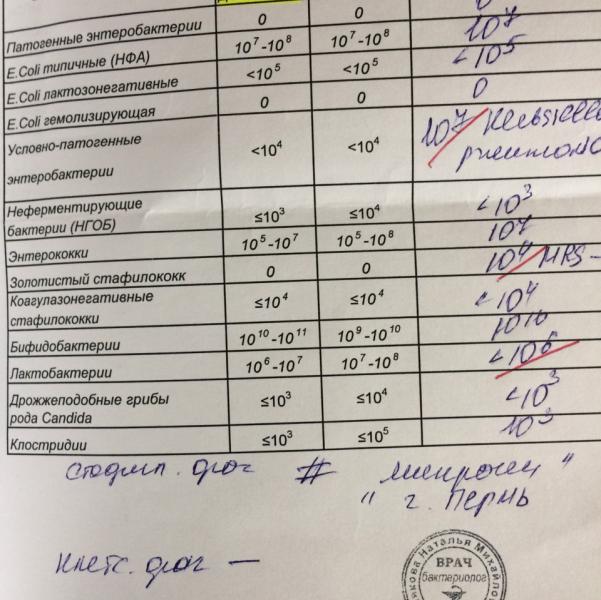 0
Патогенные энтеробактерии 0 0
E.Coli типичные (НФА) 10⁷-10⁸ 10⁷-10⁸ 10⁷
E.Coli лактозонегативные <10⁵ <10⁵ <10⁵
E.Coli гемолизирующая 0 0 0
Условно-патогенные
энтеробактерии <10⁴ <10⁴ 10⁷ Klebsiella
pneumonia
Неферментирующие
бактерии (НГОБ) ≤10³ ≤10⁴ <10³
Энтерококки 10⁵-10⁷ 10⁵-10⁸ 10⁷
Золотистый стафилококк 0 0 10⁴ MRS-
Коагулазонегативные
стафилококки ≤10⁴ ≤10⁴ <10⁴
Бифидобактерии 10¹⁰-10¹¹ 10⁹-10¹⁰ 10¹⁰
Лактобактерии 10⁶-10⁷ 10⁷-10⁸ <10⁶
Дрожжеподобные грибы
рода Candida ≤10³ ≤10⁴ <10³
Клостридии ≤10³ ≤10⁵ 10³
фаг # "
" г. Пермь
фаг —
Наталья Михайлов
ВРАЧ
бактериолог